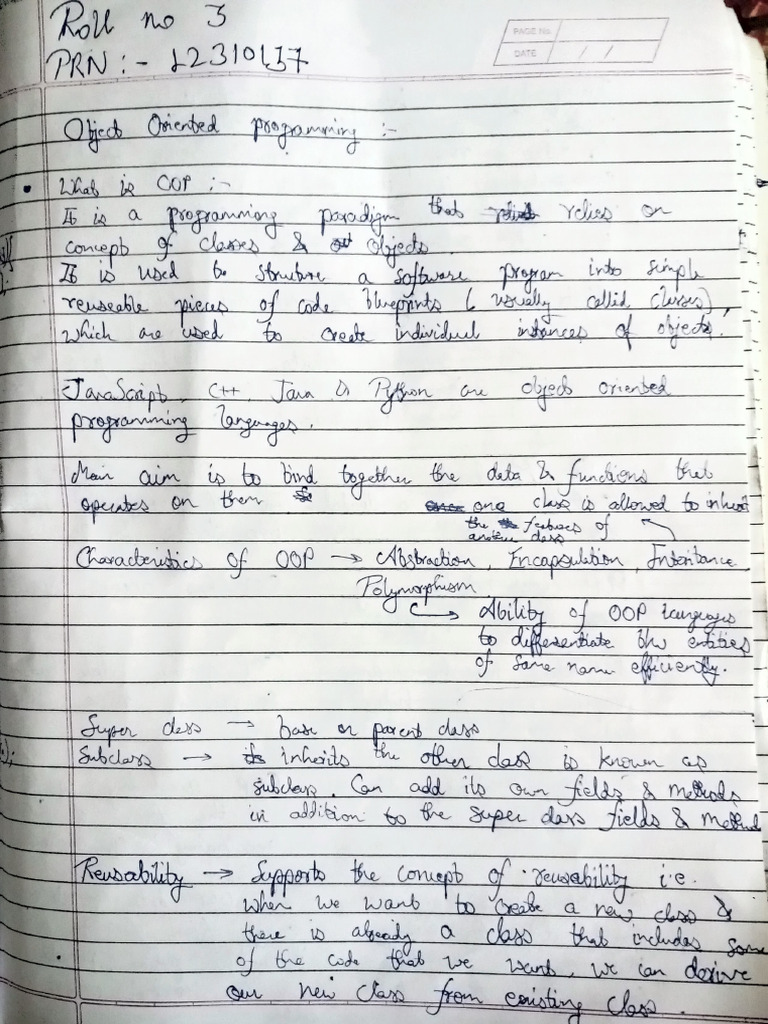 Roll no 3
PAGE No.
DATE / /
PRN :- 12310137
Object Oriented programming :-
• What is OOP :-
It is a programming paradigm that relies on
concept of classes & Objects.
It is used to structure a software program into simple
reuseable pieces of code blueprints (usually called classes),
which are used to create individual instances of objects.
JavaScript, C++, Java & Python are object oriented
programming languages.
Main aim is to bind together the data & functions that
operates on them
one class is allowed to inherit
the features of
another class
Characteristics of OOP → Abstraction, Encapsulation, Inheritance
Polymorphism
↳ Ability of OOP languages
to differentiate the entities
of same name efficiently.
Super class → base or parent class
Subclass → inherits the other class is known as
subclass. Can add its own fields & methods
in addition to the super class fields & method
Reusability → Supports the concept of reusability i.e.
when we want to create a new class &
there is already a class that includes some
of the code that we want, we can derive
our new class from existing class.